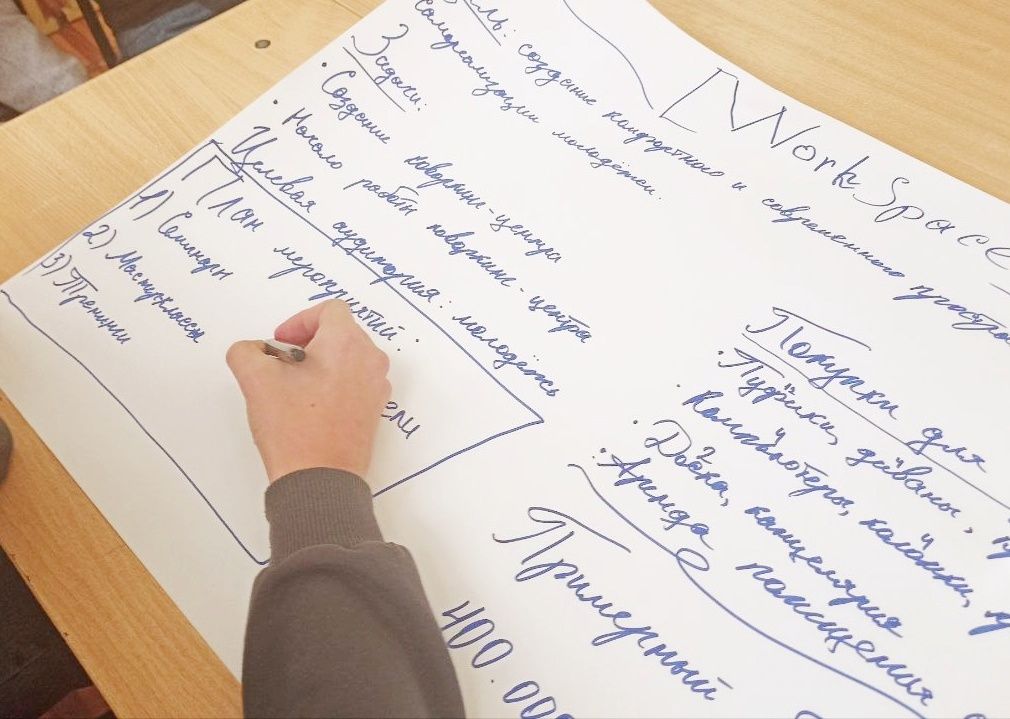 Work Space
ль: создание комфортного и современного
самореализации молодёжи.
Задачи:
• Создание коворкинг-центра
• Начало работы коворкинг-центра
Целевая аудитория: молодёжь
План мероприятий:
1) Семинары
2) Мастерклассы
3) Тренинги
ели
Покупки для
• Пуфики, диваны,
• Компьютеры, колонки,
• Доска, канцелярия
• Аренда помещения
Примерный
400.000